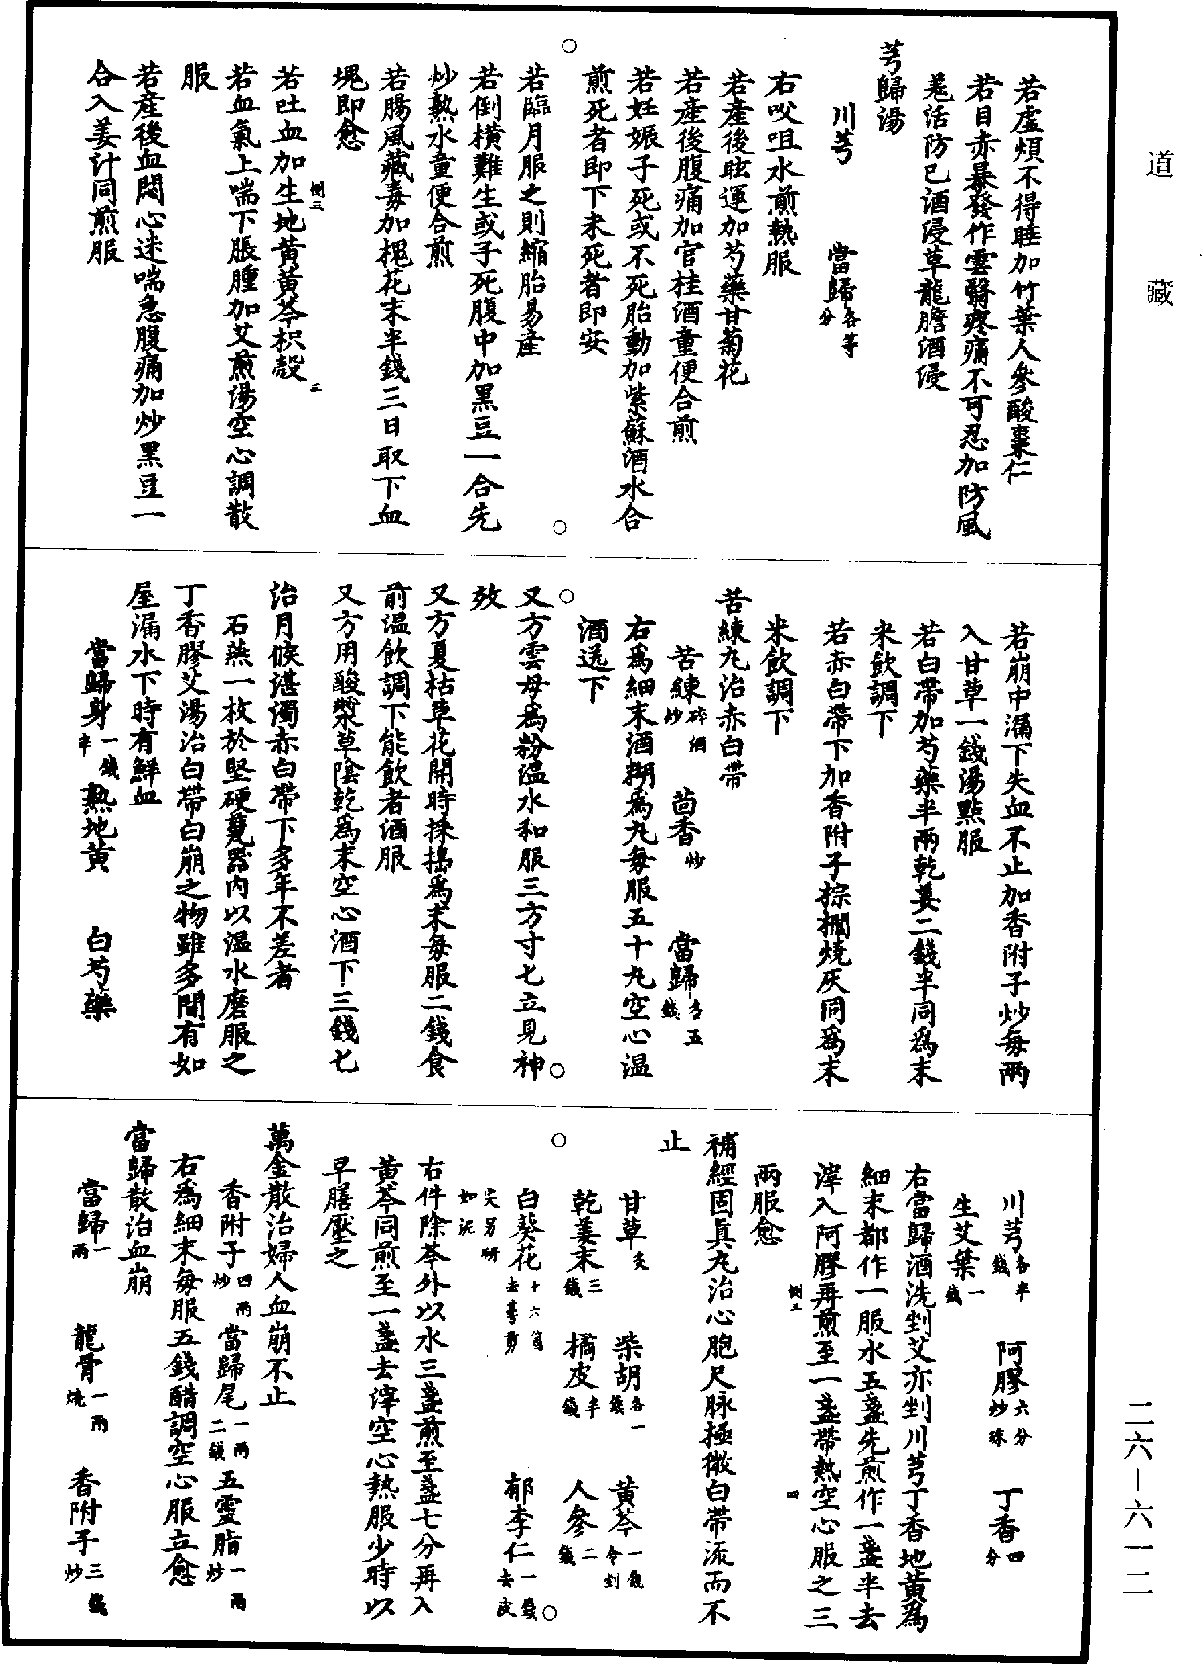 道藏
若虛煩不得睡加竹葉人參酸棗仁
若目赤暴發作雲翳疼痛不可忍加防風
羌活防己酒浸草龍膽酒浸
芎歸湯
川芎　當歸各等分
右㕮咀水煎熱服
若產後眩運加芍藥甘菊花
若產後腹痛加官桂酒童便合煎
若妊娠子死或不死胎動加紫蘇酒水合
煎死者即下未死者即安
若臨月服之則縮胎易產
若倒橫難生或子死腹中加黑豆一合先
炒熱水童便合煎
若腸風藏毒加槐花末半錢三日取下血
塊即愈
若吐血加生地黃黃芩枳殼
若血氣上喘下脹腫加艾煎湯空心調散
服
若產後血悶心迷喘急腹痛加炒黑豆一
合入姜汁同煎服
若崩中漏下失血不止加香附子炒每兩
入甘草一錢湯點服
若白帶加芍藥半兩乾姜二錢半同為末
米飲調下
若赤白帶下加香附子棕櫚燒灰同為末
米飲調下
苦練丸治赤白帶
苦練碎酒炒　茴香炒　當歸各五錢
右為細末酒糊為丸每服五十丸空心温
酒送下
又方雲母為粉温水和服三方寸七立見神
效
又方夏枯草花開時採搗為末每服二錢食
前温飲調下能飲者酒服
又方用酸漿草陰乾為末空心酒下三錢七
治月候湛濁赤白帶下多年不差者
石燕一枚於堅硬甆器內以温水磨服之
丁香膠艾湯治白帶白崩之物雖多間有如
屋漏水下時有鮮血
當歸身一錢半　熟地黃　白芍藥
川芎各半錢　阿膠六分炒珠　丁香四分
生艾葉一錢
右當歸酒洗剉艾亦剉川芎丁香地黃為
細末都作一服水五盞先煎作一盞半去
滓入阿膠再煎至一盞帶熱空心服之三
兩服愈
補經固真丸治心胞尺脉極微白帶流而不
止
甘草炙　柴胡各一錢　黃芩一錢令剉
乾姜末三錢　橘皮半錢　人參二錢
白葵花十六箇去萼剪　郁李仁一錢去皮
尖另研如泥
右件除芩外以水三盞煎至盞七分再入
黃芩同煎至一盞去滓空心熱服少時以
早膳壓之
萬金散治婦人血崩不止
香附子四兩炒　當歸尾一兩二錢　五靈脂一兩炒
右為細末每服五錢醋調空心服立愈
當歸散治血崩
當歸一兩　龍骨一兩燒　香附子三錢炒
二六—六一二